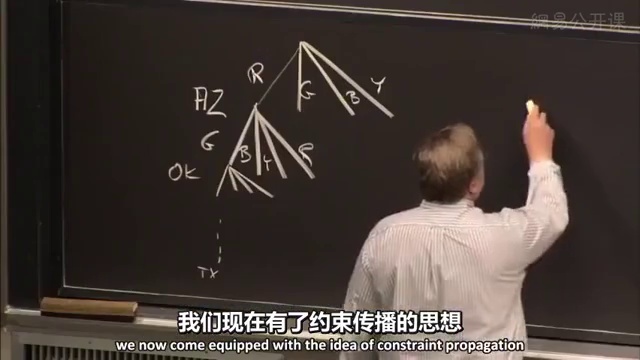 網易公开课
R
G
B
Y
AZ
G
B
Y
R
OK
TX
我们现在有了约束传播的思想
we now come equipped with the idea of constraint propagation